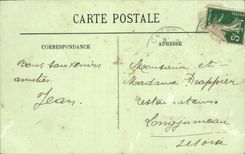 CARTE POSTALE
CORRESPONDANCE
ADRESSE
Bons souvenirs
amitiés
Jean
Monsieur et
Madame Drappier
restaurateurs
Longjumeau
5